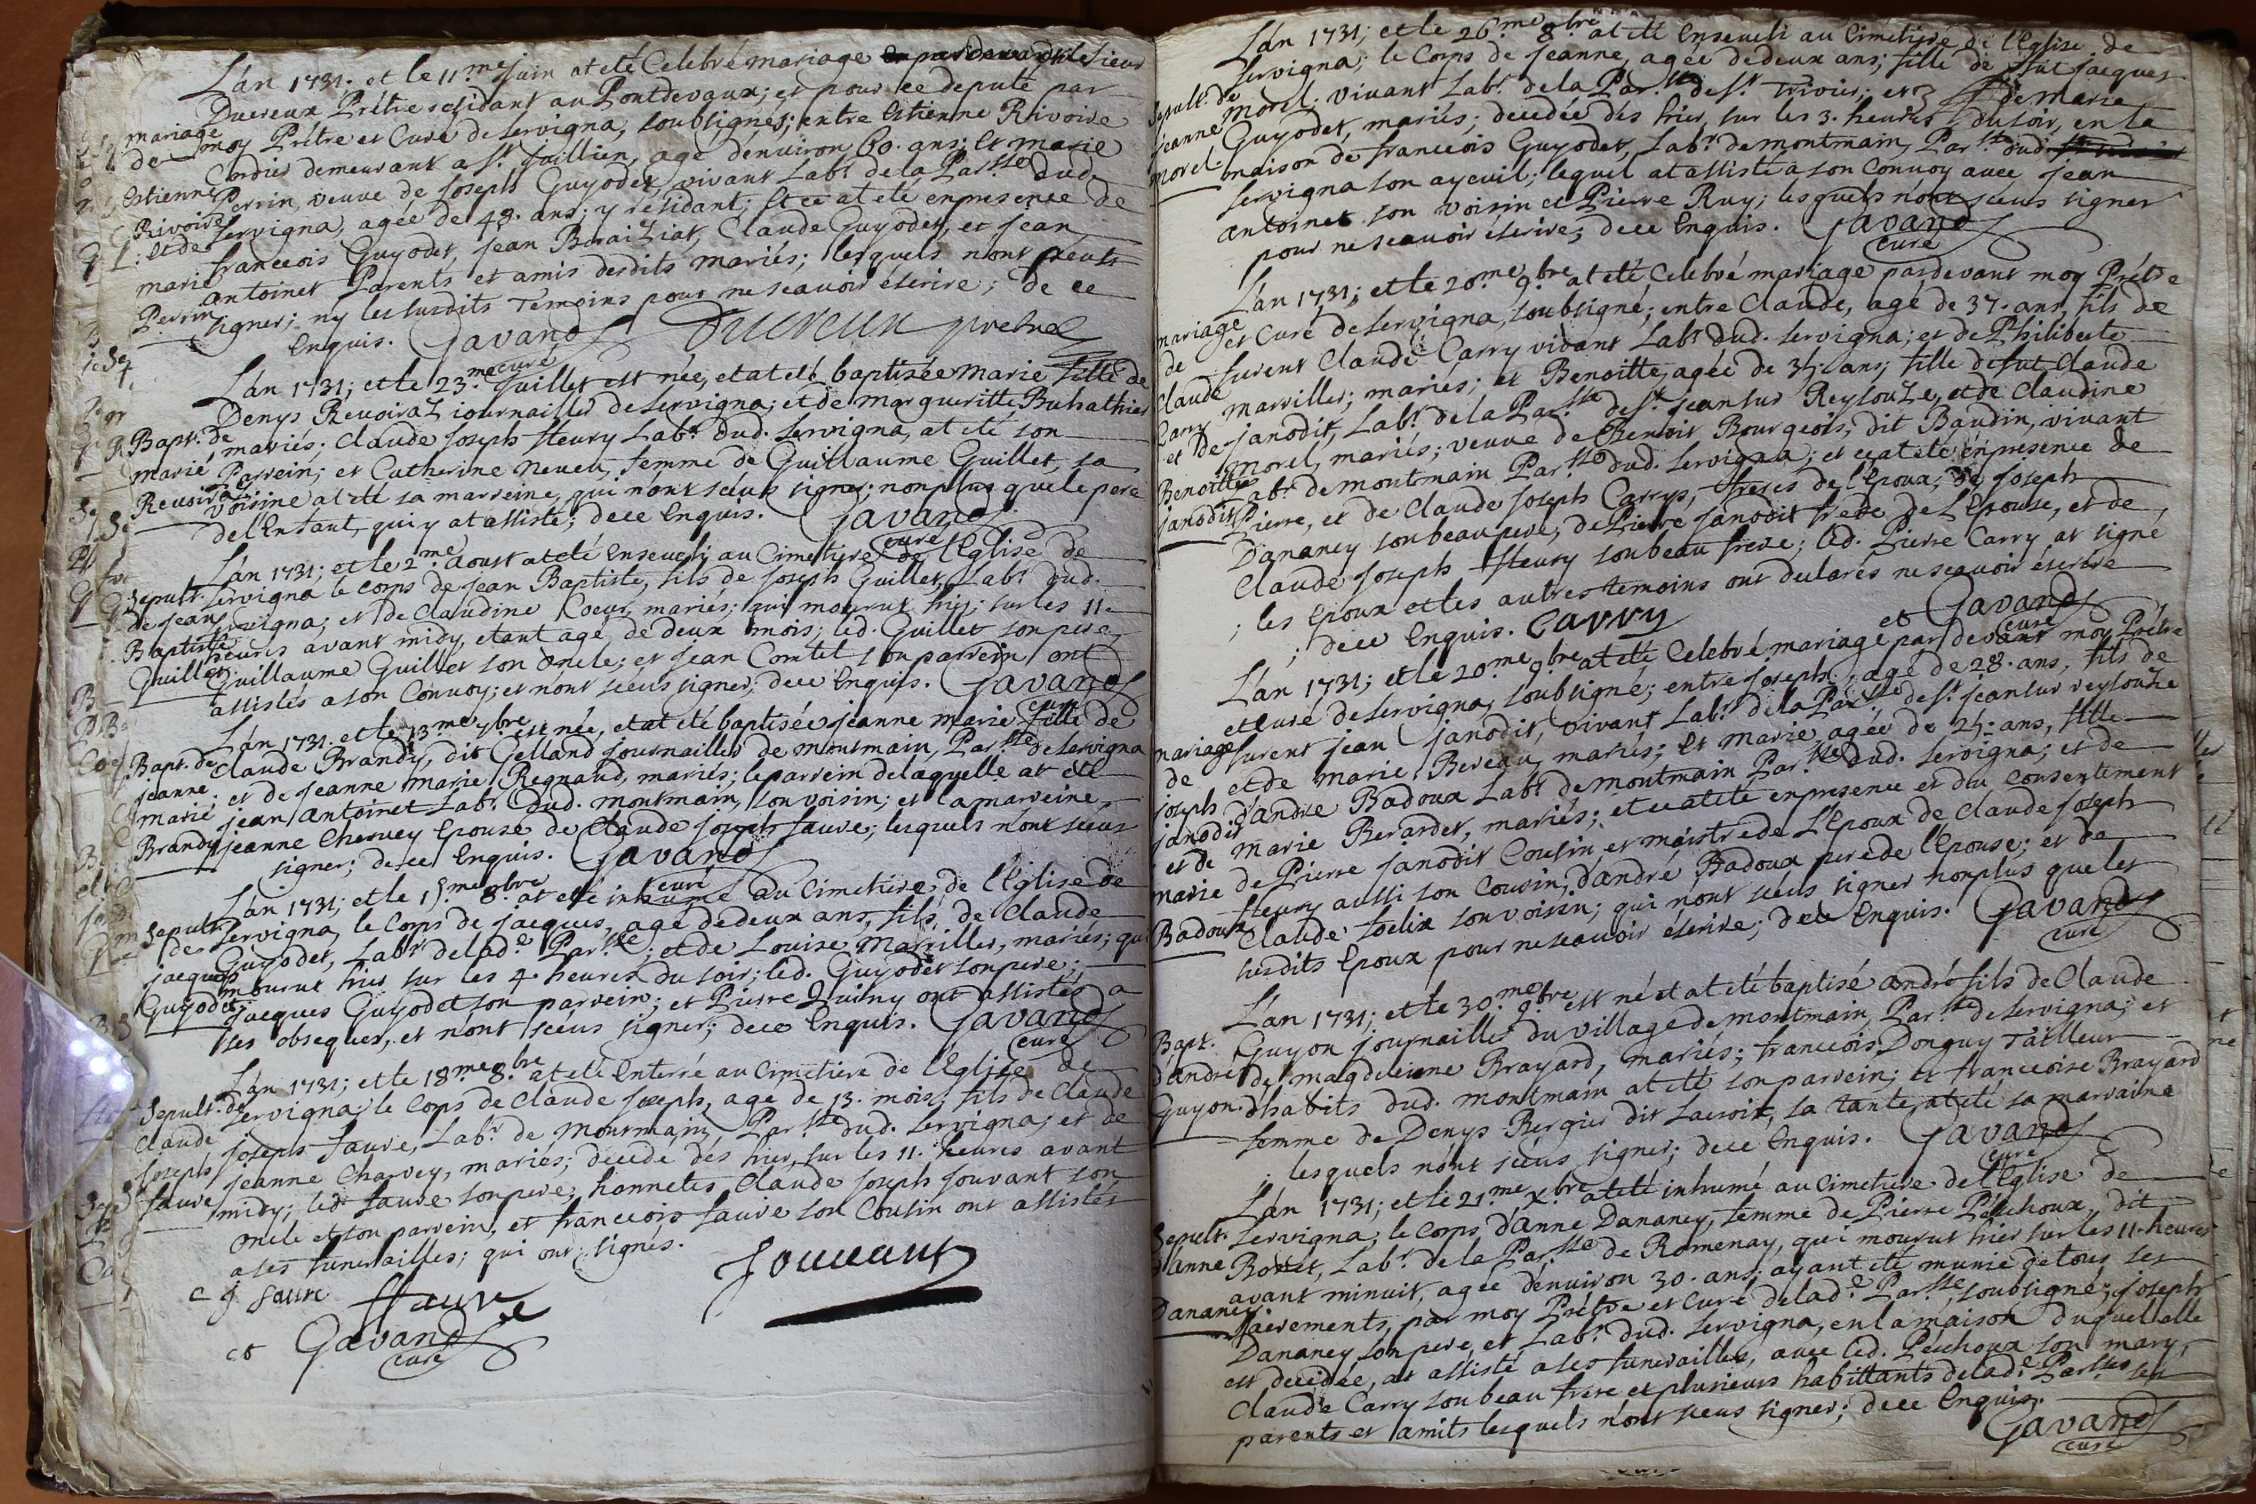 L'an 1731. et le 11.me Juin at eté Celebré mariage
Ducreux Prêtre residant au Pontdevaux; et pour ce deputé par
mariage moy Prêtre et Curé de Servigna, soubsignés; entre Estienne Rivoire
de Cordier demeurant a St. Jullien, agé d'enuiron 60. ans; Et marie
Estienne Perrin, veuve de Joseph Guyodet, vivant Labr. de la Par.sse dud.
Rivoire Servigna, agée de 48. ans; y residant; Et ce at eté en presence de
et de francois Guyodet, Jean Beraiziat, Claude Guyodet, et Jean
marie antoinet Parents et amis desdits mariés; lesquels n'ont sceuts
Perrin signer; ny les susdits Temoins pour ne scavoir éscrire; de ce
Enquis. Gavand curé Ducreux prebre
L'an 1731; et le 23.me Juillet est née, et at eté baptisée Marie fille de
Denys Revoiraz iournaillier de Servigna; et de Margueritte Buhathier
Bapt. de mariés; Claude Joseph fleury Labr. dud. Servigna, at eté son
marie Parrein; et Catherine neveu, femme de Guillaume Guillet, sa
Revoiraz voisine at eté sa marreine, qui n'ont sceuts signer; nonplus que le pere
de l'Enfant, qui y at assisté; de ce Enquis. Gavand curé
L'an 1731; et le 2.me Aoust at eté Enseueli au Cimetiere de l'Eglise de
Sepult. Servigna le Corps de Jean Baptiste, fils de Joseph Guillet, Labr. dud.
de Jean Servigna; et de Claudine Coeur, mariés; qui mourut hier; sur les 11.
Baptiste heures avant midy, etant agé de deux mois; led. Guillet son pere,
Guillet Guillaume Guillet son oncle; et Jean Comtet son parrein ont
assistés a son Convoy; et n'ont sceus signer; de ce Enquis. Gavand curé
L'an 1731. et le 13.me 7.bre est née, et at eté baptisée Jeanne Marie fille de
Bapt. de Claude Brandy, dit Gelland Journaillier de montmain, Par.sse de Servigna
Jeanne et de Jeanne Marie Regnaud, mariés; le parrein de laquelle at eté
marie Jean Antoinet Labr. dud. montmain, son voisin; et la marreine
Brandy Jeanne Charvey Epouse de Claude Joseph Sauve; lesquels n'ont sceus
signer; de ce Enquis. Gavand curé
L'an 1731; et le 15.me 8.bre at eté inhumé au Cimetiere de l'Eglise de
Sepult. Servigna, le Corps de Jacques, agé de deux ans, fils de Claude
de Guyodet, Labr. de lad.e Par.sse; et de Louise Marviller, mariés; qui
jacques mourut hier sur les 4. heures du soir; led. Guyodet son pere;
Guyodet Jacques Guyodet son parrein; et Pierre Quiny ont assistés a
ses obseques, et n'ont sceus signer; de ce Enquis. Gavand curé
L'an 1731; et le 18.me 8.bre at eté Enterré au Cimetiere de l'Eglise de
Sepult. de Servigna; le Corps de Claude Joseph, agé de 13. mois; fils de Claude
Claude Joseph Sauve, Labr. de Montmain, Par.sse dud. Servigna; et de
Joseph Jeanne Charvey, mariés; decedé dés hier, sur les 11. heures avant
Sauve midy; led. Sauve son pere; honnetes Claude Joseph Jouvant son
oncle et son parrein, et francois Sauve son Cousin ont assistés
a ses funerailles; qui ont signés. Jouvant
c j Sauve
Sauve
et Gavand
curé
L'an 1731; et le 26.me 8.bre at eté Enseueli au Cimetiere de l'Eglise de
Servigna; le Corps de Jeanne, agée de deux ans; fille de fut Jacques
Sepult. de Morel; vivant Labr. de la Par.sse de St. Trivier; et de Marie
Jeanne Guyodet, mariés; decedée dés hier, sur les 3. heures du soir, en la
Morel. maison de francois Guyodet, Labr. de montmain, Par.sse dud.
Servigna son ayeuil; lequel at assisté a son Convoy avec Jean
antoinet son voisin et Pierre Ruy; lesquels n'ont sceus signer
pour ne scavoir éscrire; de ce Enquis. Gavand curé
L'an 1731; et le 20.me 9.bre at eté Celebré mariage pardevant moy Prêtre
mariage et Curé de Servigna, soubsigné; entre Claude, agé de 37. ans, fils de
de furent Claude Carry vivant Labr. dud. Servigna; et de Philiberte
Claude marviller; mariés; et Benoitte, agée de 35. ans; fille de fut Claude
Carry Janodit, Labr. de la Par.sse de St. Jean sur Reysouze, et de Claudine
et de Morel, mariés; veuve de Benoit Bourgeois, dit Baudin, vivant
Benoitte Labr. de montmain Par.sse dud. Servigna; et ce at eté en presence de
Janodit Pierre, et de Claude Joseph Carrys, freres de l'Epoux; de Joseph
Dananey son beau pere; de Pierre Janodit frere de l'Epouse, et de
Claude Joseph fleury son beau frere; led. Pierre Carry at signé
; les Epoux et les autres temoins ont declarés ne scavoir éscrire
; de ce Enquis. Carry et Gavand curé
L'an 1731; et le 20.me 9.bre at eté Celebré mariage par devant moy Prêtre
et Curé de Servigna, soubsigné; entre Joseph, agé de 28. ans, fils de
mariage furent Jean Janodit, vivant Labr. de la Par.sse de St. Jean sur reysouze
de et de Marie Bereau, mariés; Et Marie, agée de 25. ans, fille
Joseph d'André Badoux Labr. de montmain Par.sse dud. Servigna; et de
Janodit Marie Berardet, mariés; et ce at eté en presence et du consentement
et de de Pierre Janodit Cousin et maistre de l'Epoux de Claude Joseph
marie fleury aussi son Cousin, d'andré Badoux pere de l'Epouse; et de
Badoux Claude foelix son voisin; qui n'ont sceus signer nonplus que les
susdits Epoux pour ne scavoir éscrire; de ce Enquis. Gavand curé
L'an 1731; et le 30.me 9.bre est né et at eté baptisé André fils de Claude
Bapt. Guyon journaillier du village de montmain, Par.sse de Servigna; et
d'andré de magdeleine Brayard, mariés; francois Donguy Tailleur
Guyon. d'habits dud. montmain at eté son parrein; et francoise Brayard
femme de Denys Bergier dit Lacroix, sa tante, at eté sa marraine
; lesquels n'ont sceus signer; de ce Enquis. Gavand curé
L'an 1731; et le 21.me X.bre at eté inhumé au Cimetiere de l'Eglise de
Sepult. Servigna, le Corps d'Anne Dananey, femme de Pierre Péuchoux, dit
d'anne Botet, Labr. de la Par.sse de Romenay, qui mourut hier sur les 11. heures
Dananey. avant minuit, agée d'enuiron 30. ans; ayant eté munie de tous ses
Sacrements, par moy Prêtre et Curé de lad.e Par.sse, soubsigné; Joseph
Dananey son pere, et Labr. dud. Servigna, en la maison duquel elle
est decedée, at assisté a ses funerailles, avec led. Péuchoux son mary,
Claude Carry son beau frere et plusieurs habittants de lad.e Par.sse ses
parents et amits lesquels n'ont sceus signer; de ce Enquis.
Gavand
curé